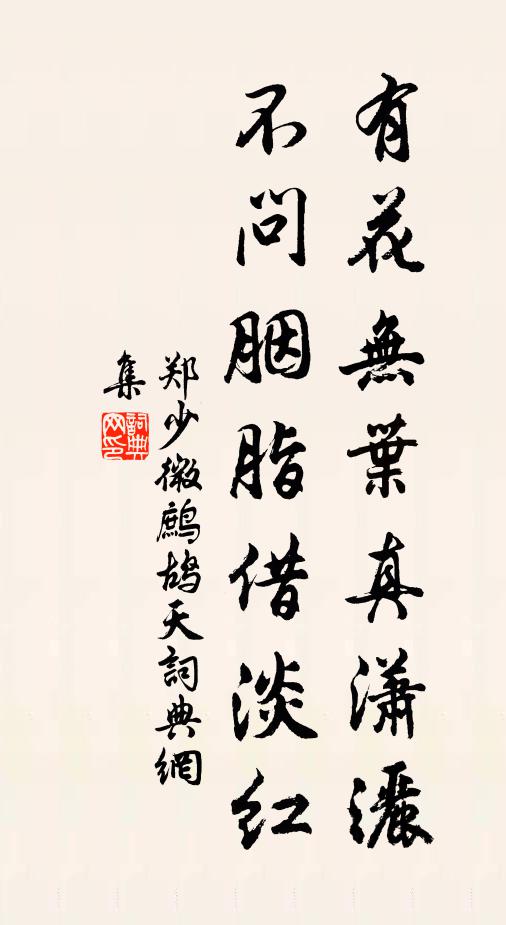 有花無葉真瀟灑
不問胭脂借淡紅
郑少微鹧鸪天詞典網
集
詞典网印